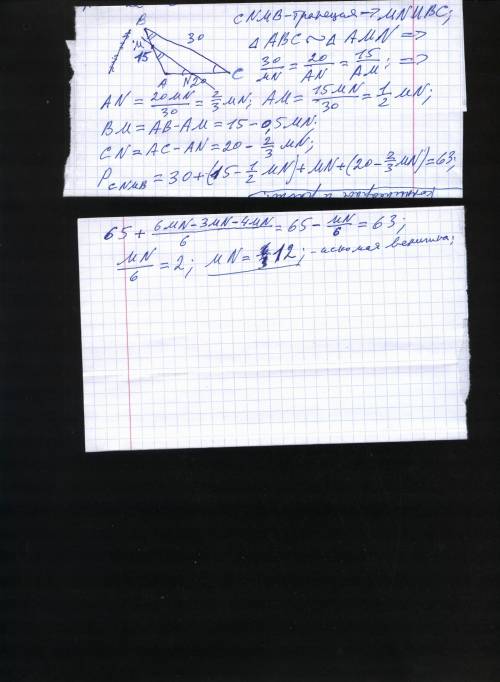 B
30
M
15
A
N
20
C
CNMB-трапеция → MN∥BC;
Δ ABC ∼ Δ AMN =>
30/MN = 20/AN = 15/AM; =>
AN = 20MN/30 = 2/3 MN; AM = 15MN/30 = 1/2 MN;
BM = AB - AM = 15 - 0,5MN;
CN = AC - AN = 20 - 2/3 MN;
P CNMB = 30 + (15 - 1/2 MN) + MN + (20 - 2/3 MN) = 63;
65 + (6MN - 3MN - 4MN)/6 = 65 - MN/6 = 63;
MN/6 = 2; MN = 12; - искомая величина;